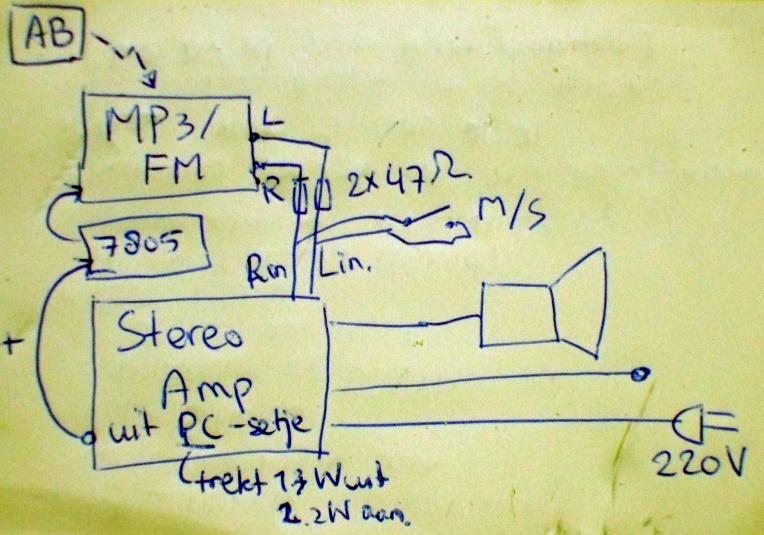 AB
MP3/
FM
L
R
2x47Ω
M/S
7805
Rin
Lin.
+
Stereo
Amp
uit PC-setje
220V
trekt W uit
2.2W aan.